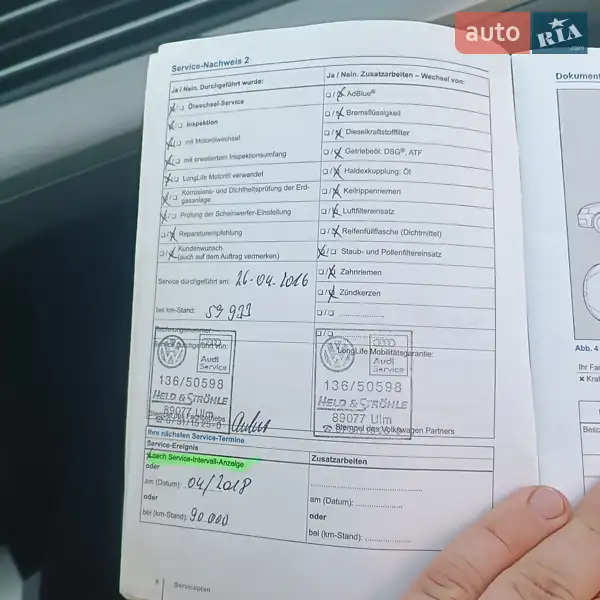 auto RIA .com
Service-Nachweis 2
Ja / Nein. Durchgeführt wurde:
Ölwechsel-Service
Inspektion
mit Motorölwechsel
mit erweitertem Inspektionsumfang
LongLife Motoröl verwendet
Korrosions- und Dichtheitsprüfung der Erd-
gasanlage
Prüfung der Scheinwerfer-Einstellung
Reparaturempfehlung
Kundenwunsch
(auch auf dem Auftrag vermerken)
Service durchgeführt am: 26-04.2016
bei km-Stand: 59 911
Rechnungsnummer:
Service durchgeführt von:
Audi
Service
136/50598
HELD & STRÖHLE
89077 Ulm
Stempel des Fachbetriebs
☎ 0731/1525-0
Ja / Nein. Zusatzarbeiten – Wechsel von:
AdBlue®
Bremsflüssigkeit
Dieselkraftstofffilter
Getriebeöl: DSG®, ATF
Haldexkupplung: Öl
Keilrippenriemen
Luftfiltereinsatz
Reifenfüllflasche (Dichtmittel)
Staub- und Pollenfiltereinsatz
Zahnriemen
Zündkerzen
LongLife Mobilitätsgarantie:
Audi
Service
136/50598
HELD & STRÖHLE
89077 Ulm
Stempel des Volkswagen Partners
Ihre nächsten Service-Termine
Service-Ereignis
nach Service-Intervall-Anzeige
oder
am (Datum): 04/2018
oder
bei (km-Stand): 90.000
Zusatzarbeiten
am (Datum):
oder
bei (km-Stand):
6 Serviceplan
Dokument
Abb. 4
Ihr Fa
× Kra
Besc